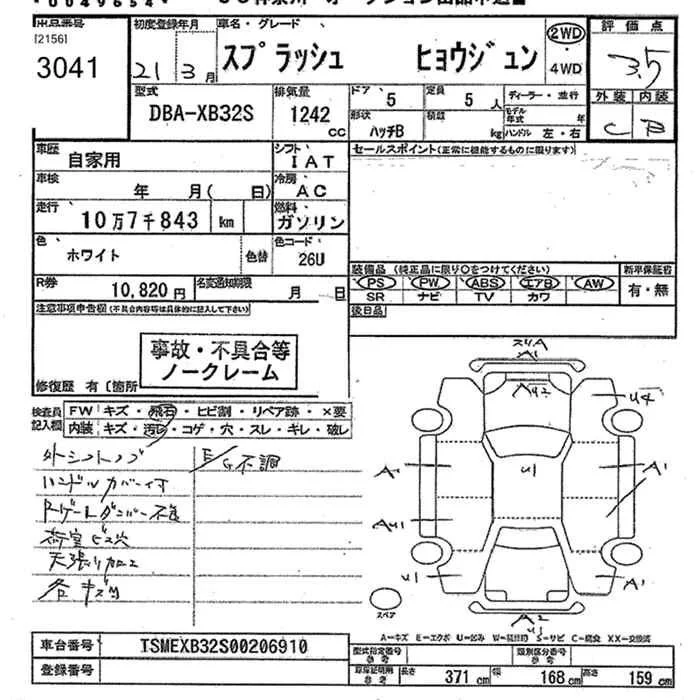 0049654
[2156]
3041
初度登録年月
21 3月
車名・グレード
スプラッシュ ヒョウジュン
2WD
・
4WD
評価点
3.5
型式
DBA-XB32S
排気量
1242
CC
ドア
5
定員
5人
ディーラー・並行
形状
ハッチB
積載
kg
モデル年式
年
ハンドル 左・右
外装 内装
C B
車歴
自家用
シフト
IAT
セールスポイント(正常に機能するものに限ります)
車検
年 月( 日)
冷房
AC
走行
10万7千843 km
燃料
ガソリン
色
ホワイト
色替
色コード
26U
装備品 (純正品に限り○をつけてください)
新車保証書
PS PW ABS エアB AW
有・無
SR ナビ TV カワ
R券
10,820円
名変通知期限
月 日
後日品
注意事項申告欄(不具合内容等は具体的に記入して下さい)
事故・不具合等
ノークレーム
修復歴 有〔箇所
検査員
記入欄
FW キズ・飛石・ヒビ割・リペア跡・×要
内装 キズ・汚レ・コゲ・穴・スレ・キレ・破レ
外シフトノブ
E/G不調
ハンドルカバー付
Rゲートダンパー不良
荷室ビス穴
天張り加工
各キズ
スリA
A1
AU2
U4
U1
A
A1
AU1
U1
A1
スペア
A2
U1
A-キズ E-エクボ U-凹み W-補修跡 S-サビ C-腐食 XX-交換済
車台番号
TSMEXB32S00206910
登録番号
型式指定番号
参考
類別区分番号
参考
車庫証明用
参考
長さ 371cm
幅 168cm
高さ 159cm